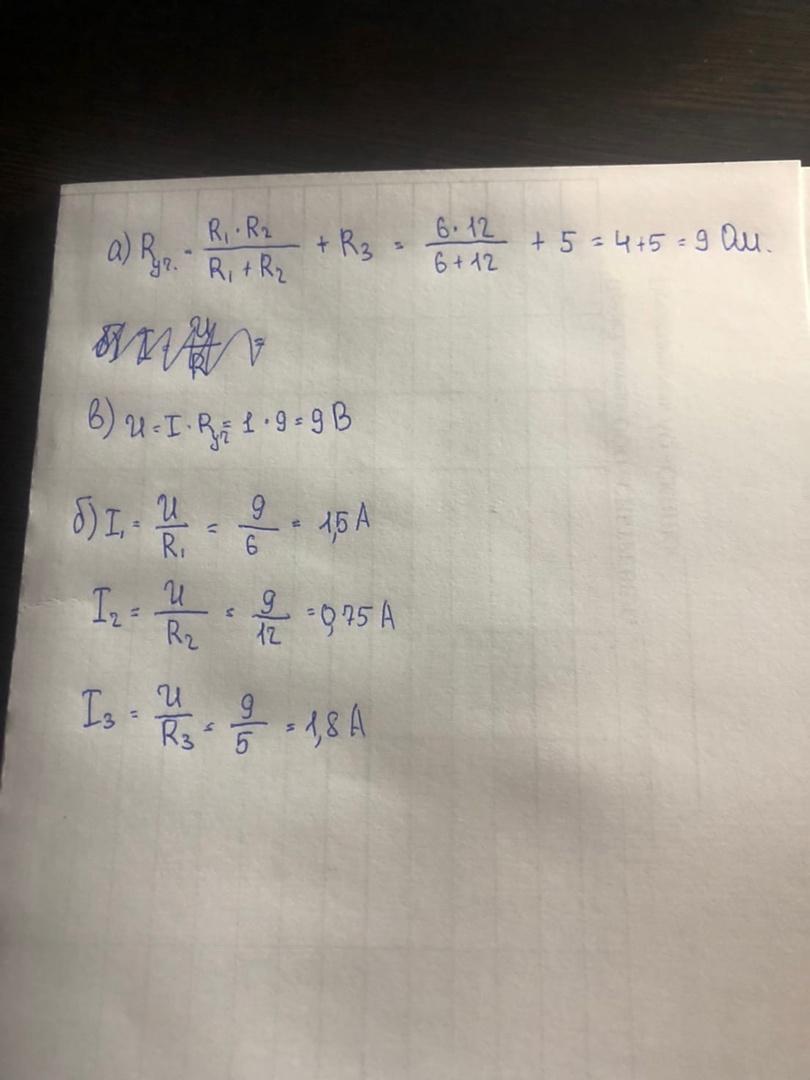 а) Rуч. = R₁·R₂ / R₁+R₂ + R₃ = 6·12 / 6+12 + 5 = 4+5 = 9 Ом.
в) U = I · Rуч = 1 · 9 = 9 В
б) I₁ = U / R₁ = 9 / 6 = 1,5 А
I₂ = U / R₂ = 9 / 12 = 0,75 А
I₃ = U / R₃ = 9 / 5 = 1,8 А